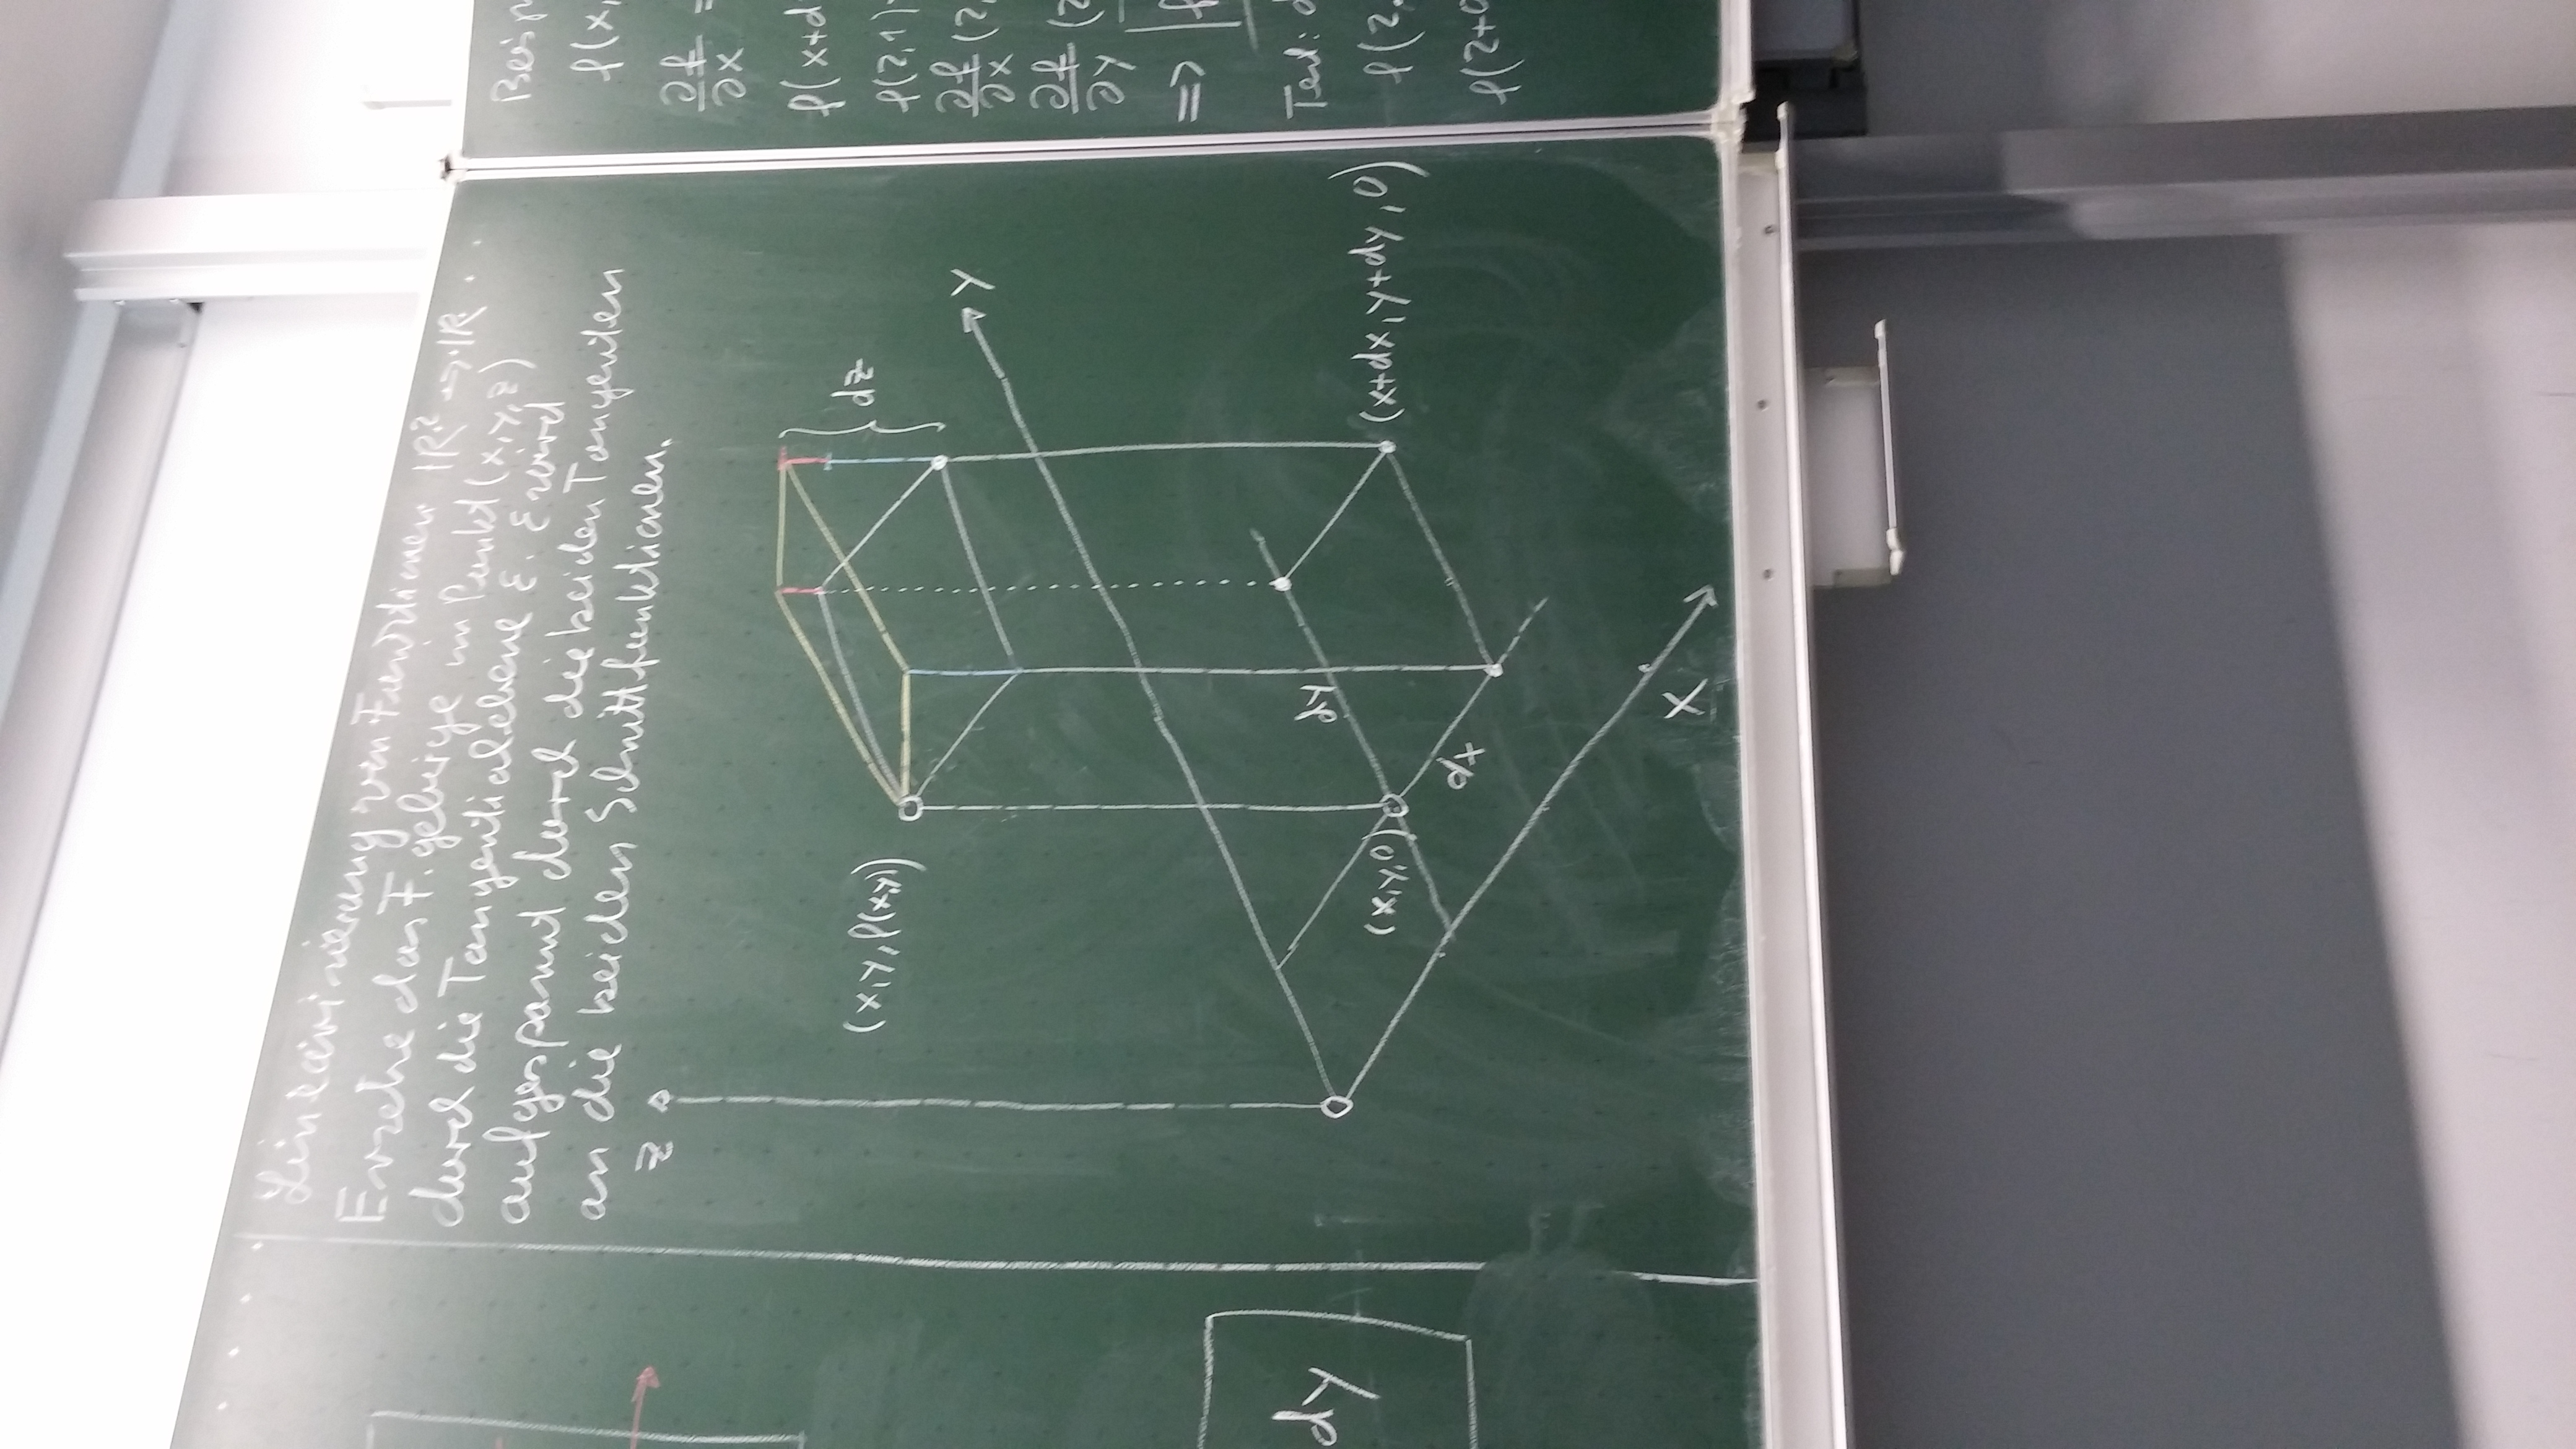 Linearisierung von Funktionen ℝ² → ℝ
Ersetze das F.gebirge im Punkt (x,y,z)
durch die Tangentialebene E. E wird
aufgespannt durch die beiden Tangenten
an die beiden Schnittfunktionen.
z
(x,y,f(x,y))
dz
y
dy
(x,y,0)
(x+dx, y+dy, 0)
dx
x
dy
f(x,
∂f/∂x =
f(x+d
f(2,1)
∂f/∂x (2,
∂f/∂y (2
=> f
Test: d
f(2,
f(2+0